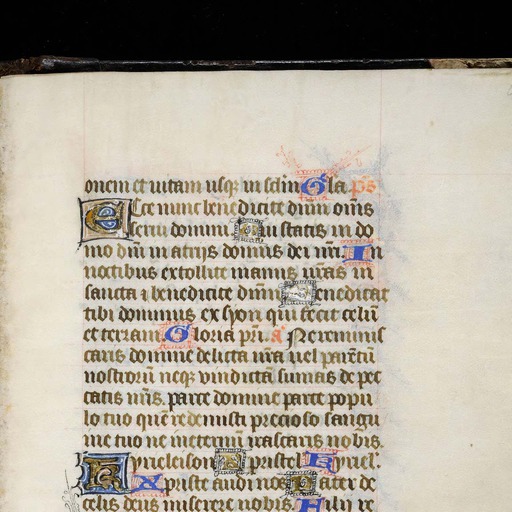 onem et uitam usq; in sclm Gla ps
Ecce nunc benedicite dnm om̅s
serui domini Qui statis in do
mo dni in atrijs domus dei nri In
noctibus extollite manus uras in
sancta ⁊ benedicite dnm Benedicat
tibi dominus ex syon qui fecit celu̅
et terram Gloria pri. a Ne reminis
caris domine delicta nra uel parentu̅
nostroru̅ neq; vindicta̅ sumas de pec
catis nris. parce domine parce popu
lo tuo que̅ redemisti precioso sangui
ne tuo ne in eternu̅ irascaris nobis.
Kyrieleison Xpristel Kyriel.
Xpriste audi nos Pater de
celis deus miserere nobis. Fily re